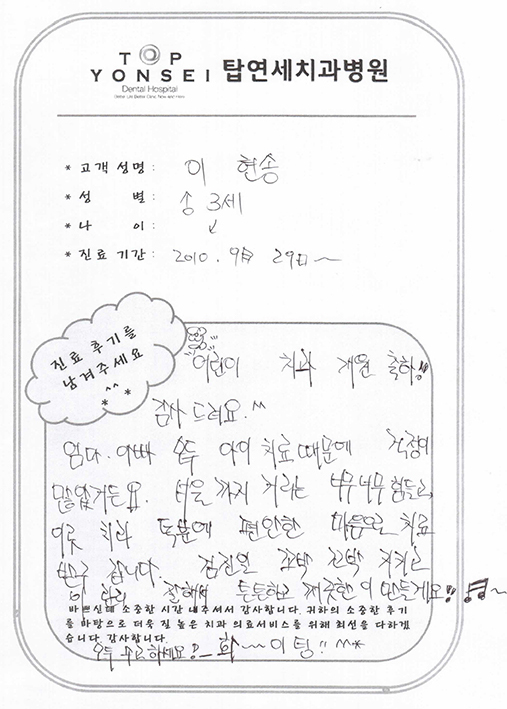 TOP
YONSEI 탑연세치과병원
Dental Hospital
* 고객 성명 : 이 현송
* 성 별 : 송 3세
* 나 이 : ↙
* 진료 기간 : 2010. 9월 29일 ~
진료 후기를
남겨주세요
^^
* *
어린이 치과 개원 축하!!
감사 드려요. ^^
엄마. 아빠 모두 아이 치료때문에 걱정이
많았거든요. 서울 까지 가려는 너무너무 힘들고,
이곳 치과 덕분에 편안한 마음으로 치료
받고 갑니다. 검진일 꼬박 꼬박 지키고
이 관리 잘해서 튼튼하고 깨끗한 이 만들게요!! ♬~
바쁘신데 소중한 시간 내주셔서 감사합니다. 귀하의 소중한 후기
를 바탕으로 더욱 질 높은 치과 의료서비스를 위해 최선을 다하겠
습니다. 감사합니다.
모두 수고하세요!_ 화~~이팅!! ^^*